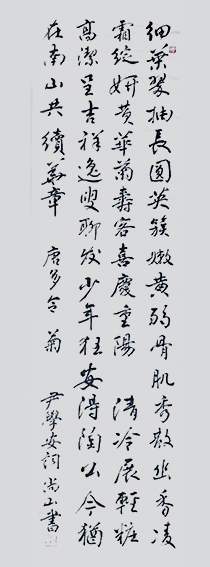 細葉翠抽長圓英簇嫩黃弱骨肌秀散幽香凌
霜綻妍黃華菊壽客喜慶重陽 清冷展輕粧
高潔呈吉祥逸叟聊發少年狂安得陶公今猶
在南山共續華章 唐多令 菊 尹學安詞尚山書